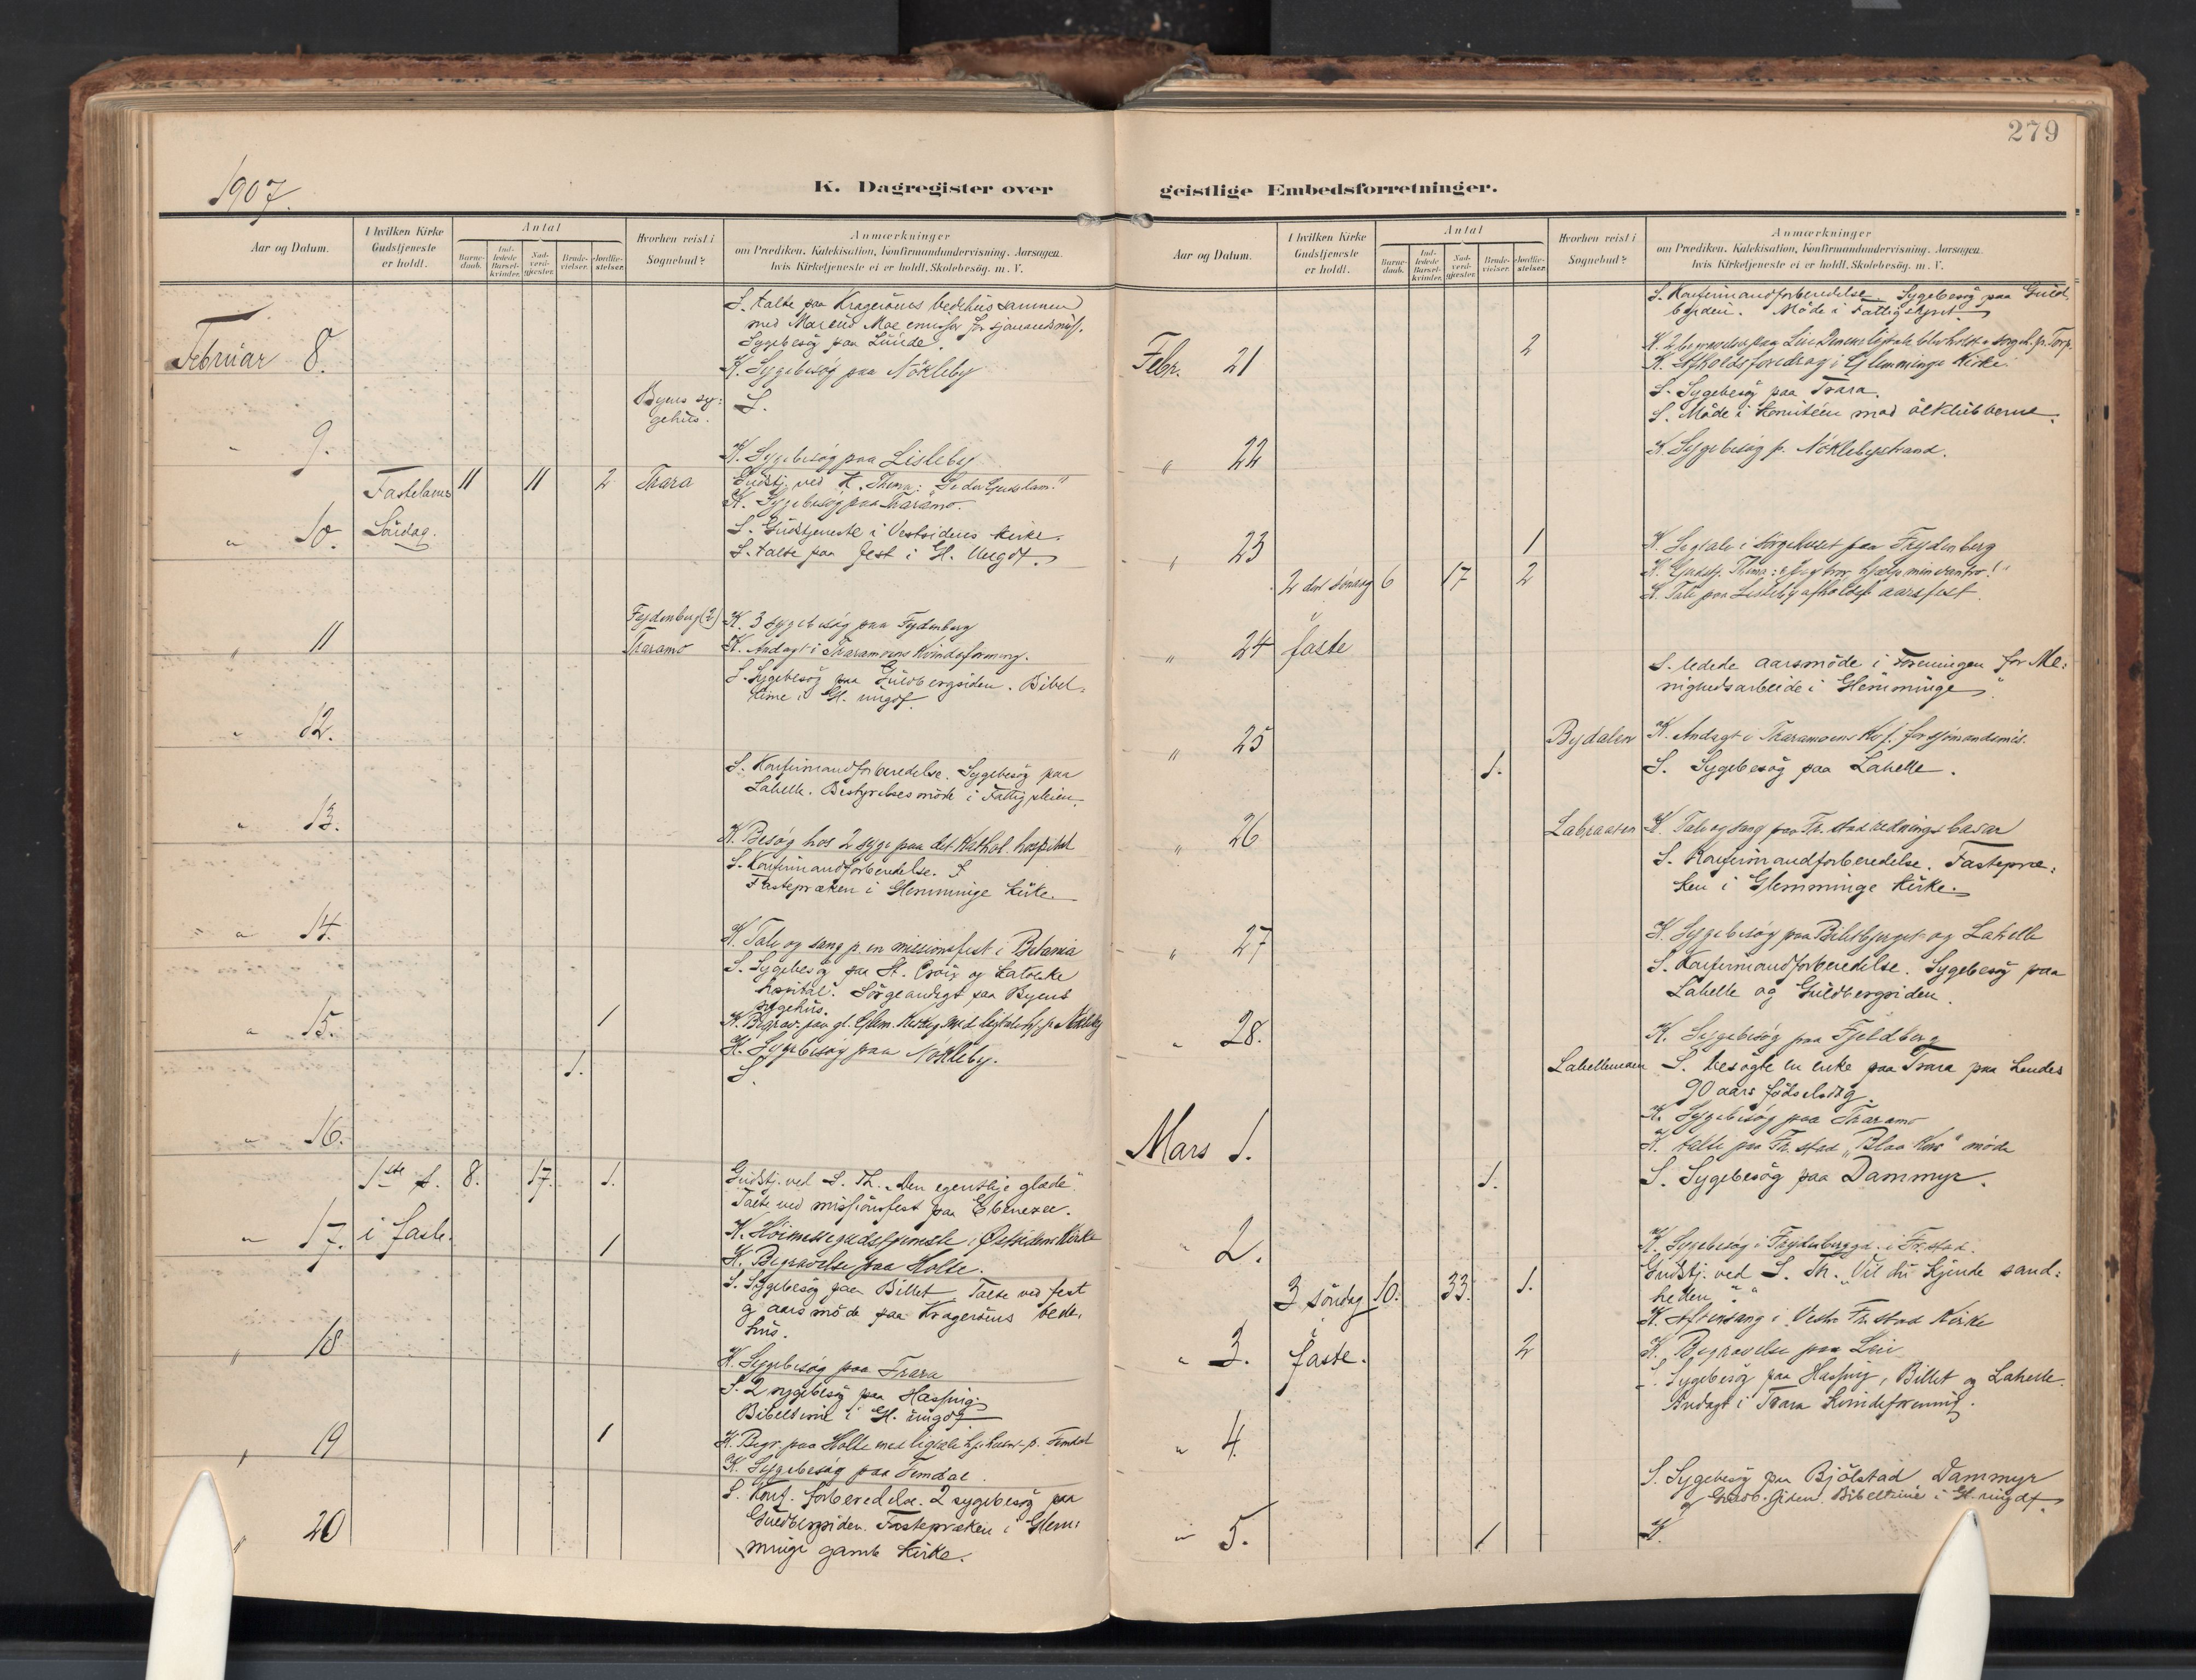 279
1907.
K. Dagregister over
geistlige Embedsforretninger.
Aar og Datum.
I hvilken Kirke
Gudstjeneste
er holdt.
Antal
Barne-
daab.
Ind-
ledede
Barsel-
kvinder.
Nad-
verd-
gjester.
Brude-
vielser.
Jordfæ-
stelser.
Hvorhen reist i
Sognebud?
Anmærkninger
om Prædiken, Katekisation, Konfirmandundervisning, Aarsagen,
hvis Kirketjeneste ei er holdt, Skolebesøg, m. V.
S. talte paa Kragerøens bedehus sammen
med
Sygebesøg paa Lunde.
Februar 8.
K. Sygebesøg paa Nökleby
Byens sy:
gehus.
S.
" 9.
K. Sygebesøg paa Lisleby
Fastelavns 11 11 2 Trara Gudstj. ved K. Thema: Se det Guds lam."
K. Sygebesøg paa Traramo.
" 10. Söndag.
S. Gudstjeneste i Vestsidens kirke.
S. talte paa fest i Gl. Ungdf.
Frydenberg (2) K. 3 sygebesøg paa Frydenberg
" 11 Traramo K. Andagt i Traramoens Kvindeforening.
S. Sygebesøg paa Guldbergsiden. Bibel-
time i Gl. ungdf.
" 12.
S. Konfirmandforberedelse. Sygebesøg paa
Lahelle. Bestyrelsesmöde i Fattigpleien.
" 13.
K. Besøg hos 2 syge paa det Kathol. hospital
S. Konfirmandforberedelse.
Fastepræken i Glemminge kirke.
" 14.
K. Tale og sang p. en missionsfest i Betania
S. Sygebesøg paa St. Croix og katolske
hospital. Sørgeandagt paa Byens
sygehus.
" 15. 1 K. Begrav. paa gl. Glem. Kirkeg. med ligtale
K. Sygebesøg paa Nökleby.
1. S.
" 16.
1ste s. 8. 17. 1. Gudstj. ved S. Th. "Den egentlige glæde".
Talte ved missionsfest paa Ebenezer.
" 17. i faste. K. Höimessegudstjeneste i Østsidens Kirke
1 K. Begravelse paa Holte.
S. Sygebesøg paa Billet. Talte ved fest
og aarsmöde paa Kragerøens bede-
hus.
" 18
K. Sygebesøg paa Trara
S. 2 sygebesøg paa Hassing
Bibeltime i Gl. ungdf.
" 19 1 K. Begr. paa Holte med ligtale
K. Sygebesøg paa Femdal.
S. Konf. forberedelse. 2 sygebesøg paa
" 20 Guldbergsiden. Fastepræken i Glem:
minge gamle kirke.
Aar og Datum.
I hvilken Kirke
Gudstjeneste
er holdt.
Antal
Barne-
daab.
Ind-
ledede
Barsel-
kvinder.
Nad-
verd-
gjester.
Brude-
vielser.
Jordfæ-
stelser.
Hvorhen reist i
Sognebud?
Anmærkninger
om Prædiken, Katekisation, Konfirmandundervisning, Aarsagen,
hvis Kirketjeneste ei er holdt, Skolebesøg, m. V.
S. Konfirmandforberedelse Sygebesøg paa Guld.
bgsiden. Möde i Fattigstyret
2 K. 2 begravelser paa Leie
Febr. 21 K. Afholdsforedrag i Glemminge Kirke.
S. Sygebesøg paa Trara.
S. Möde i komiteen mod ölklubberne.
" 22 K. Sygebesøg p. Nöklebystrand.
" 23 1 K. Ligtale i sørgehuset paa Frydenberg
2den söndag 6 17 2 K. Gudstj. Thema: "Jeg tror hjælp min vantro!"
K. Tale paa Lisleby afholdsf. aarsfest.
" 24 i faste
S. ledede aarsmöde i "Foreningen for Me:
nighedsarbeide i Glemminge".
" 25 Bydalen K. Andagt i Traramoens Kvf. for sjømandsmis.
1. S. Sygebesøg paa Lahelle.
" 26 Labraaten K. Tale og sang paa Fr.stad redningsbasar
S. Konfirmandforberedelse. Fastepræ:
ken i Glemminge kirke.
" 27 K. Sygebesøg paa Biletbjerget og Lahelle
S. Konfirmandforberedelse. Sygebesøg paa
Lahelle og Guldbergsiden.
" 28. K. Sygebesøg paa Fjeldberg
Lahellemoen S. besøgte en enke paa Trara paa hendes
90 aars fødselsdag.
K. Sygebesøg paa Traramo
Mars 1. K. talte paa Fr.stad "Blaa Kors" möde
1. S. Sygebesøg paa Dammyr.
" 2. K. Sygebesøg i Frydenberggd. i Fr.stad.
3 söndag 10. 33. 1. Gudstj. ved S. Th. "Vil du kjende sand:
heden".
K. Aftensang i Vestre Fr.stad Kirke
" 3. i faste. 2 K. Begravelse paa Leie
S. Sygebesøg paa Hassing, Billet og Lahelle.
Andagt i Trara Kvindeforening.
" 4.
S. Sygebesøg paa Bjölstad, Dammyr
og Guldb.siden. Bibeltime i Gl. ungdf.
" 5. 1 K.